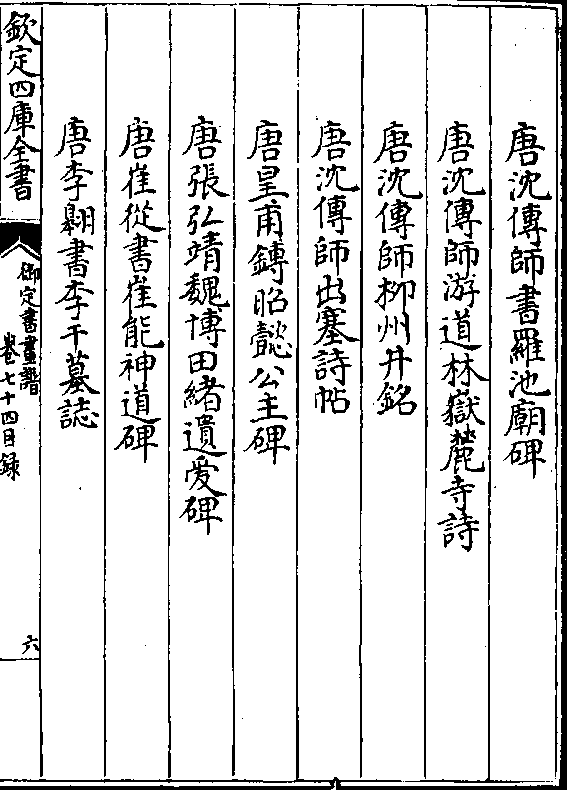 唐沈傳師書羅池廟碑
唐沈傳師游道林嶽麓寺詩
唐沈傳師柳州井銘
唐沈傳師出塞詩帖
唐皇甫鏄昭懿公主碑
唐張弘靖魏博田緒遺愛碑
唐崔從書崔能神道碑
唐李翱書李干墓誌
欽定四庫全書
御定書畫譜
卷七十四目録
六